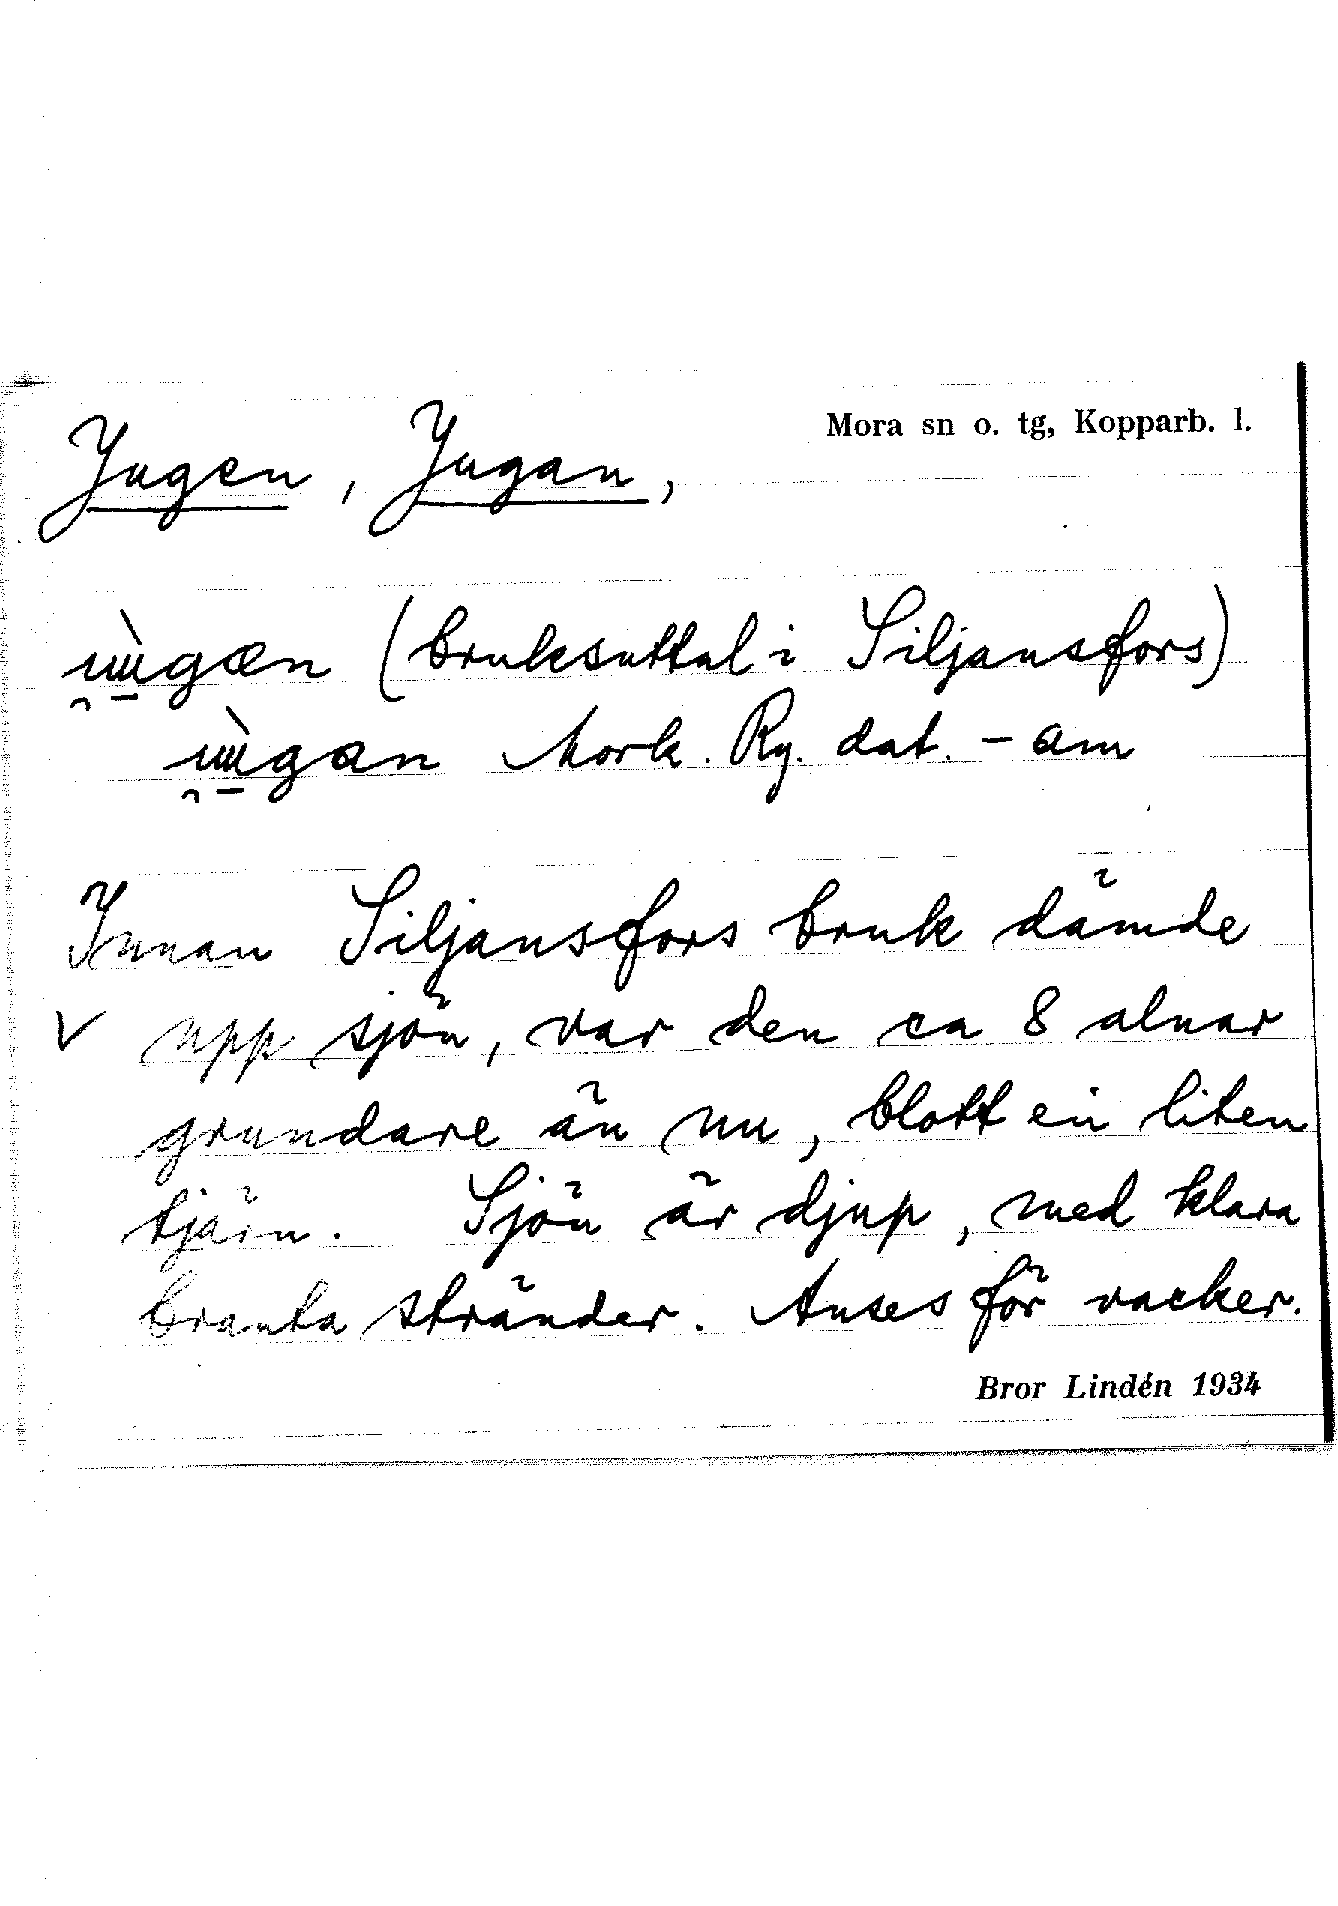 Mora sn o. tg, Kopparb. l.
Jugen, Jugan,
(bruksuttal i Siljansfors)
Mork. Ry. dat. - am
Innan Siljansfors bruk dämde
V upp sjön, var den ca 8 alnar
grundare än nu, blott en liten
tjärn. Sjön är djup, med klara
branta stränder. Anses för vacker.
Bror Lindén 1934